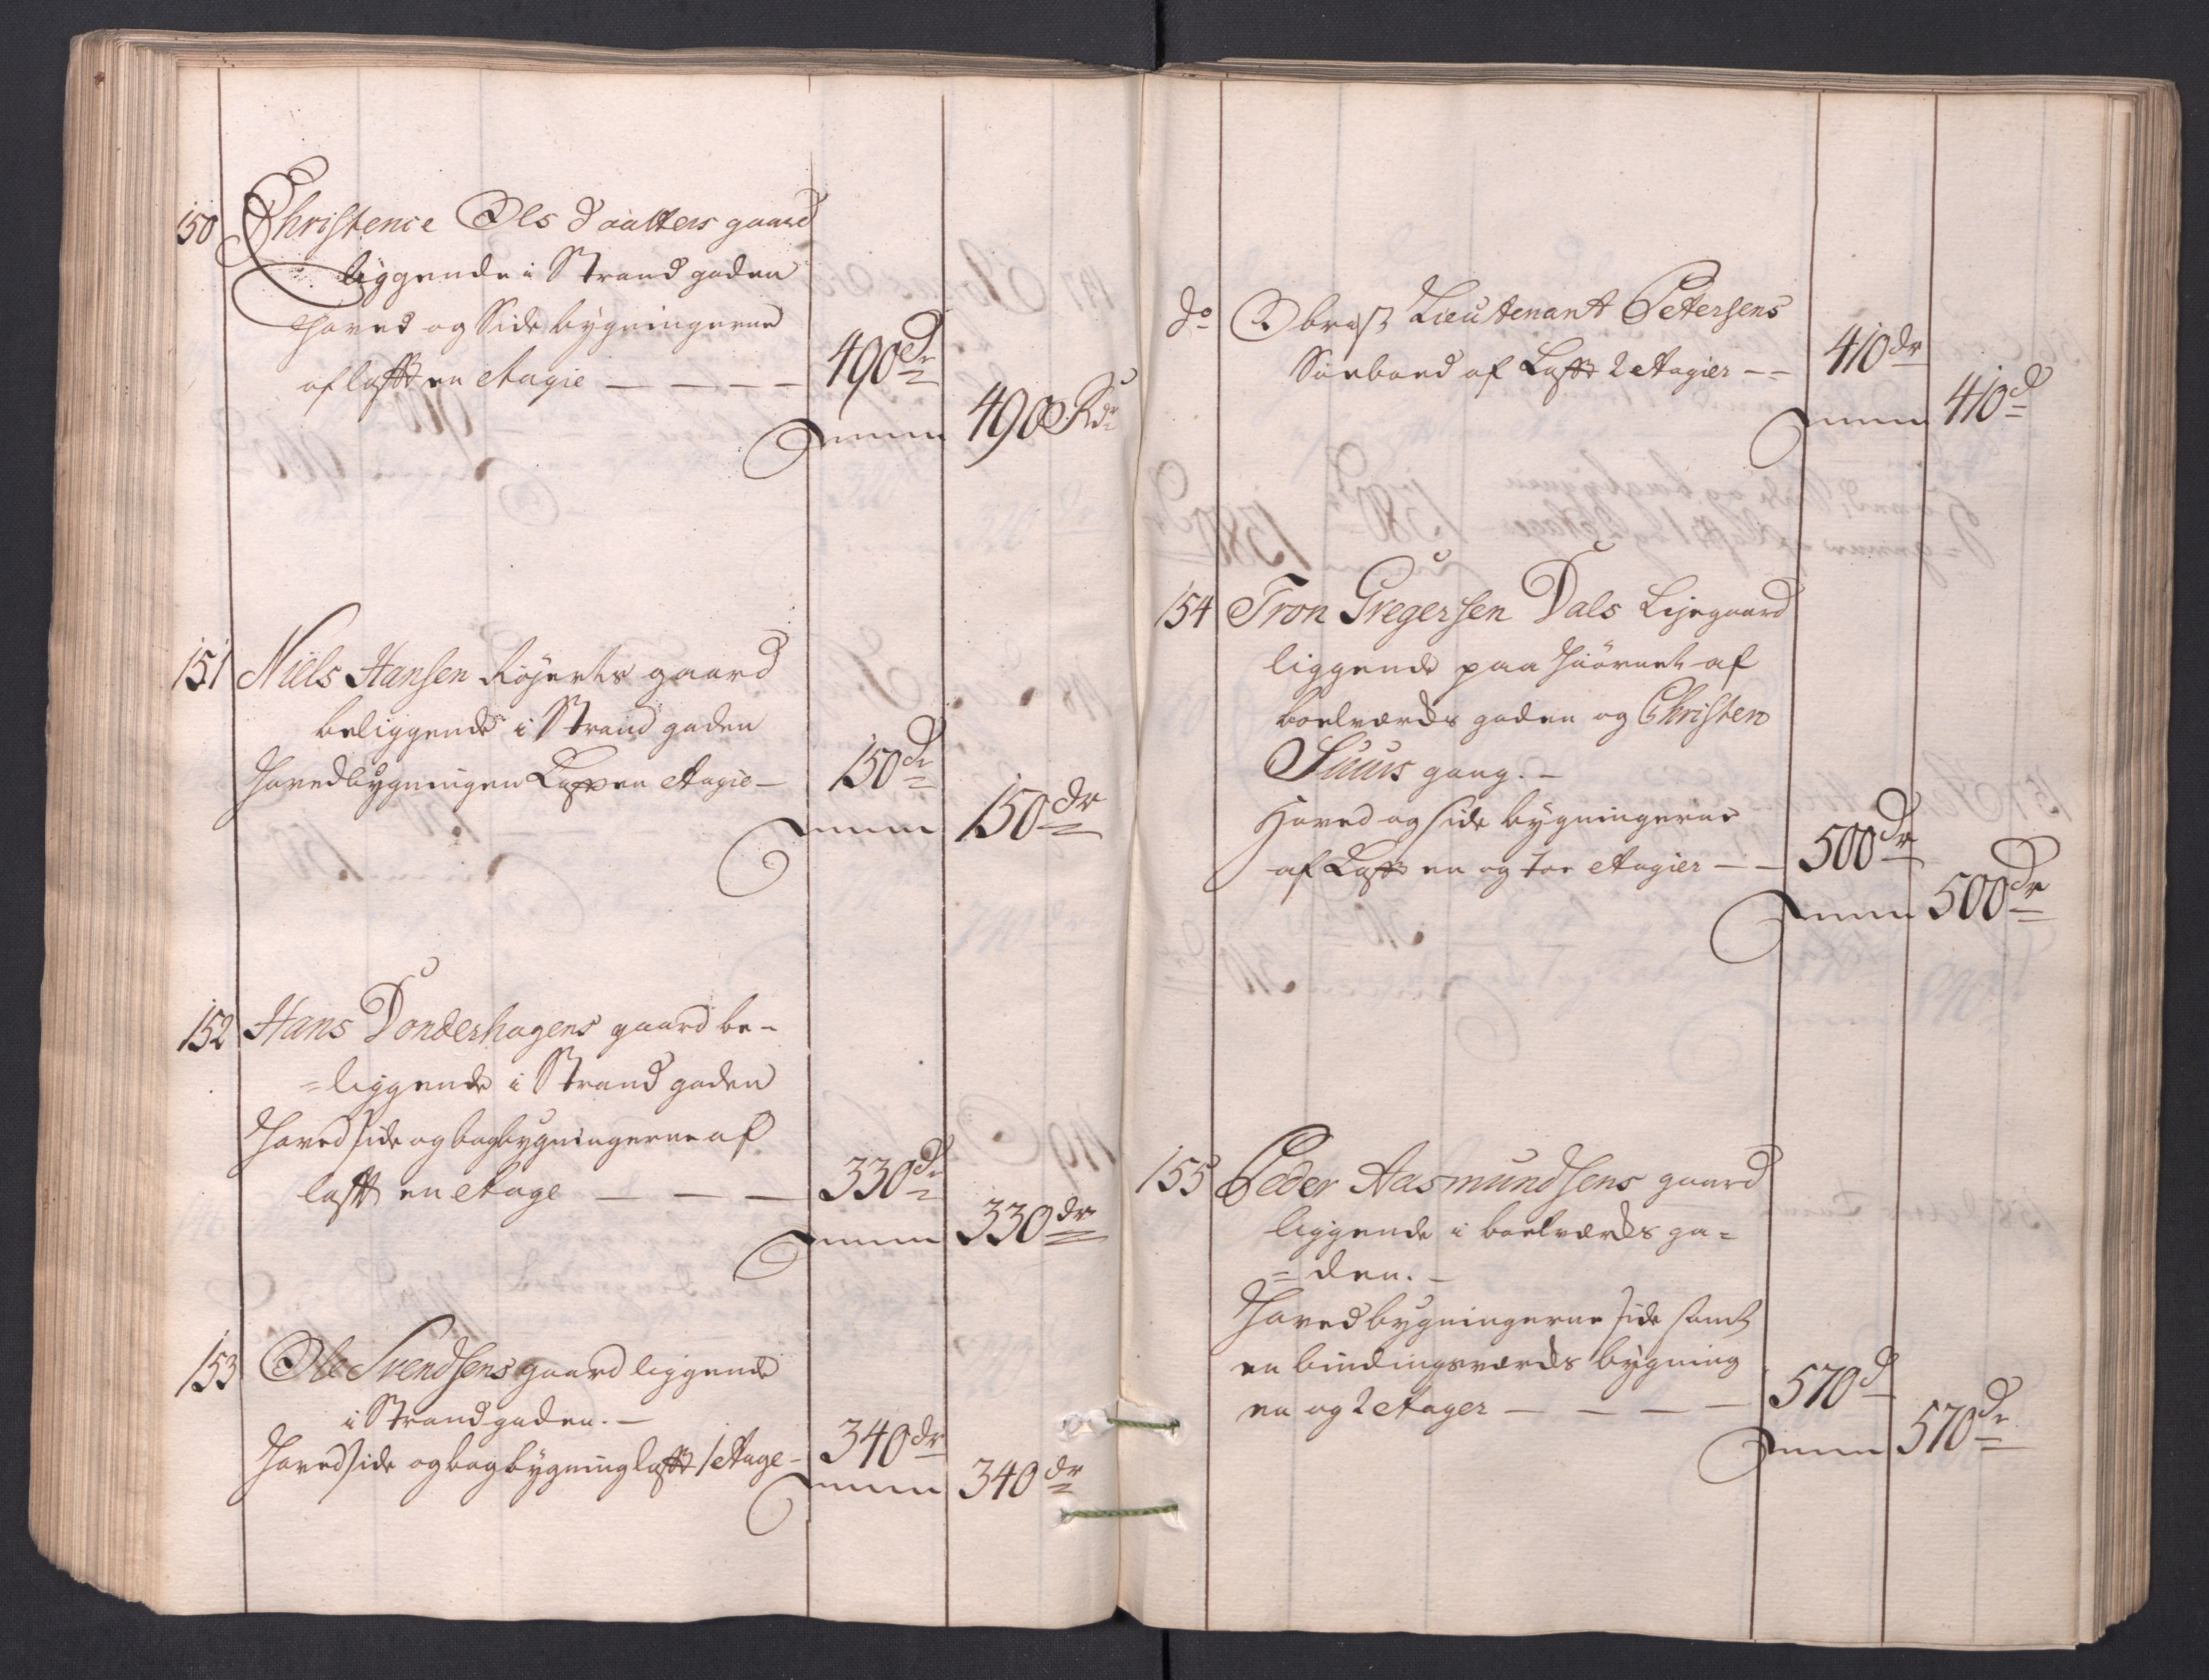 150 Christence Ols Daatters gaard
liggende i Strand gaden
Hoved og Side bygningerne
af lafft en Etagie — — — — 490 dr
Summa 490 Rdr
151 Niels Hansen Röyerts gaard
beliggende i Strand gaden
Hovedbygningen Lafft en Etagie — 150 dr
Summa 150 dr
152 Hans Donderhagens gaard be-
=liggende i Strand gaden
Hoved side og bagbygningerne af
lafft en Etage — — — 330 dr
Summa 330 dr
153 Ole Svendsens gaard liggende
i Strandgaden. —
Hoved side og bagbygning lafft 1 Etage — 340 dr
Summa 340 dr
do Obrist Lieutenant Petersens
Söeboed af Lafft 2 Etagier — — 410 dr
Summa 410 d
154 Tron Gregersen Dals Leyegaard
liggende paa hiörnet af
boelværds gaden og Christen
Suurs gang. —
Hoved og side bygningerne
af Lafft en og toe Etagier — — 500 dr
Summa 500 dr
155 Peder Aasmundsens gaard
liggende i boelværds ga=
=den. —
Hovedbygningerne side samt
en bindingsværds bygning
en og 2 Etager — — — — 570 d
Summa 570 dr